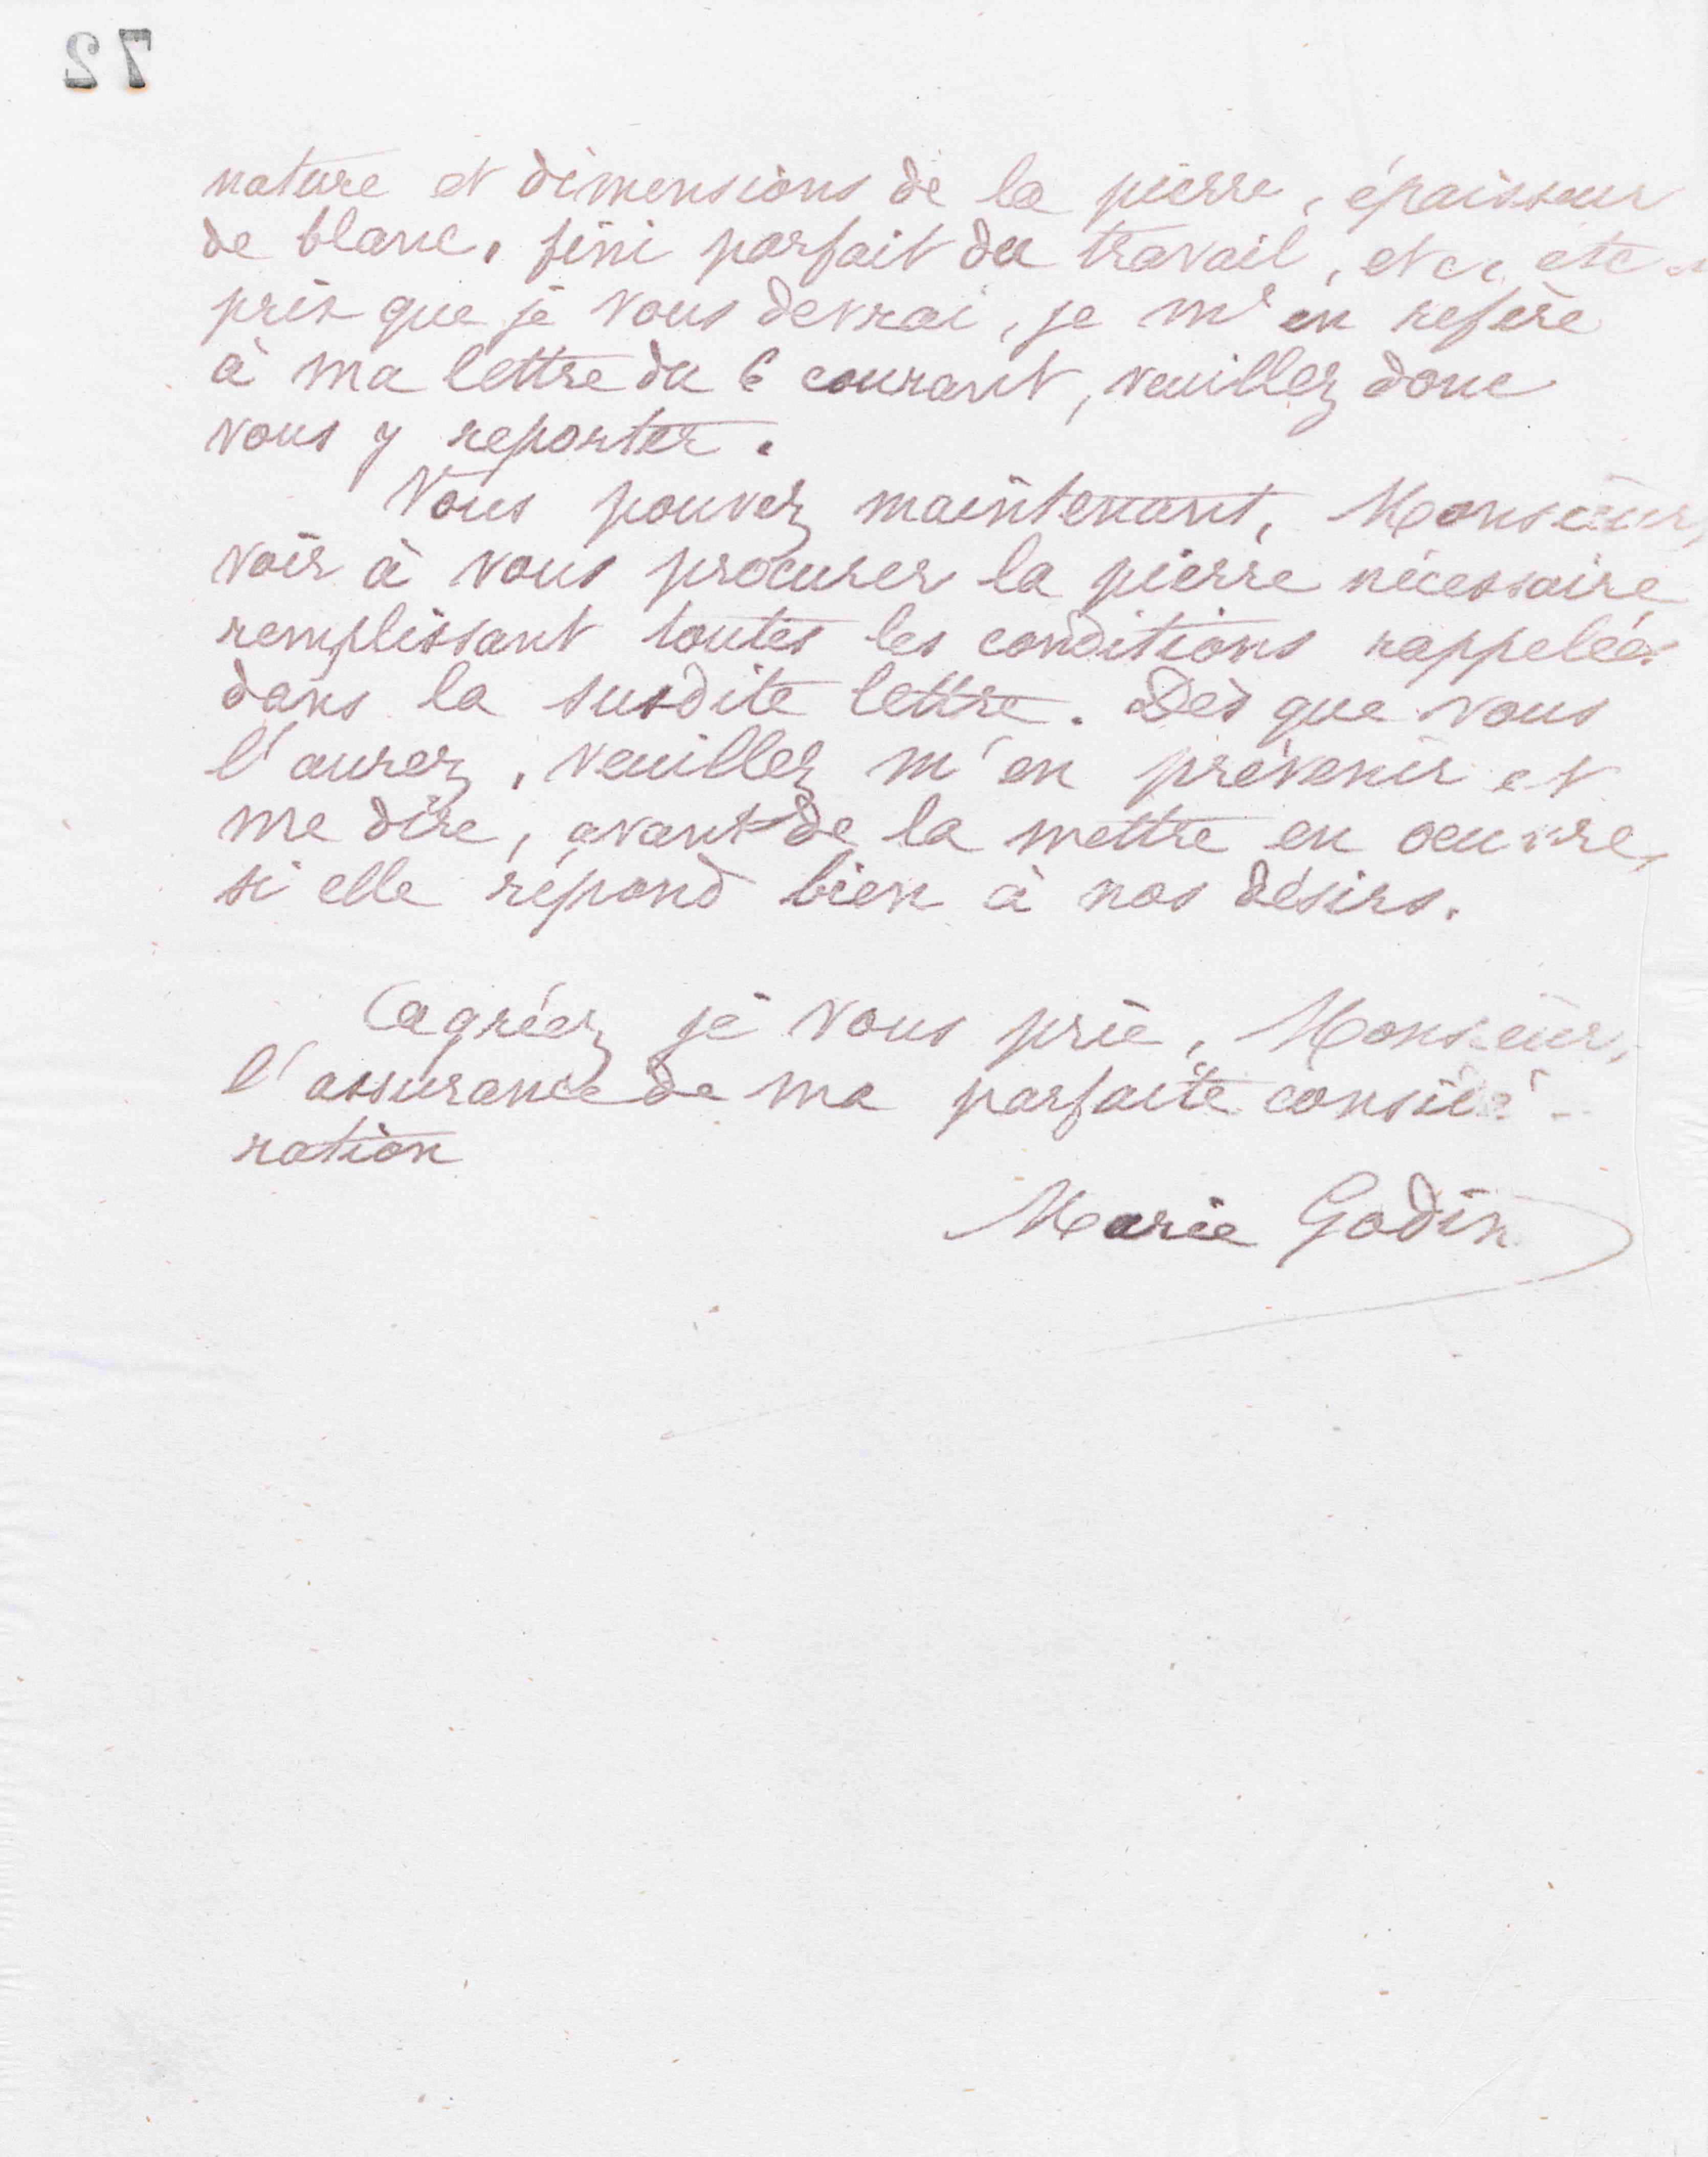 72
nature et dimensions de la pierre, épaisseur
de blanc, fini parfait du travail, etc, etc
prix que je vous devrai, je m'en refère
à ma lettre du 6 courant, veuillez donc
vous y reporter.
Vous pouvez maintenant, Monsieur,
voir à vous procurer la pierre nécessaire
remplissant toutes les conditions rappelées
dans la susdite lettre. Dès que vous
l'aurez, veuillez m'en prévenir et
me dire, avant de la mettre en oeuvre,
si elle répond bien à nos désirs.
Agréez je vous prie, Monsieur,
l'assurance de ma parfaite considé-
ration
Marie Godin